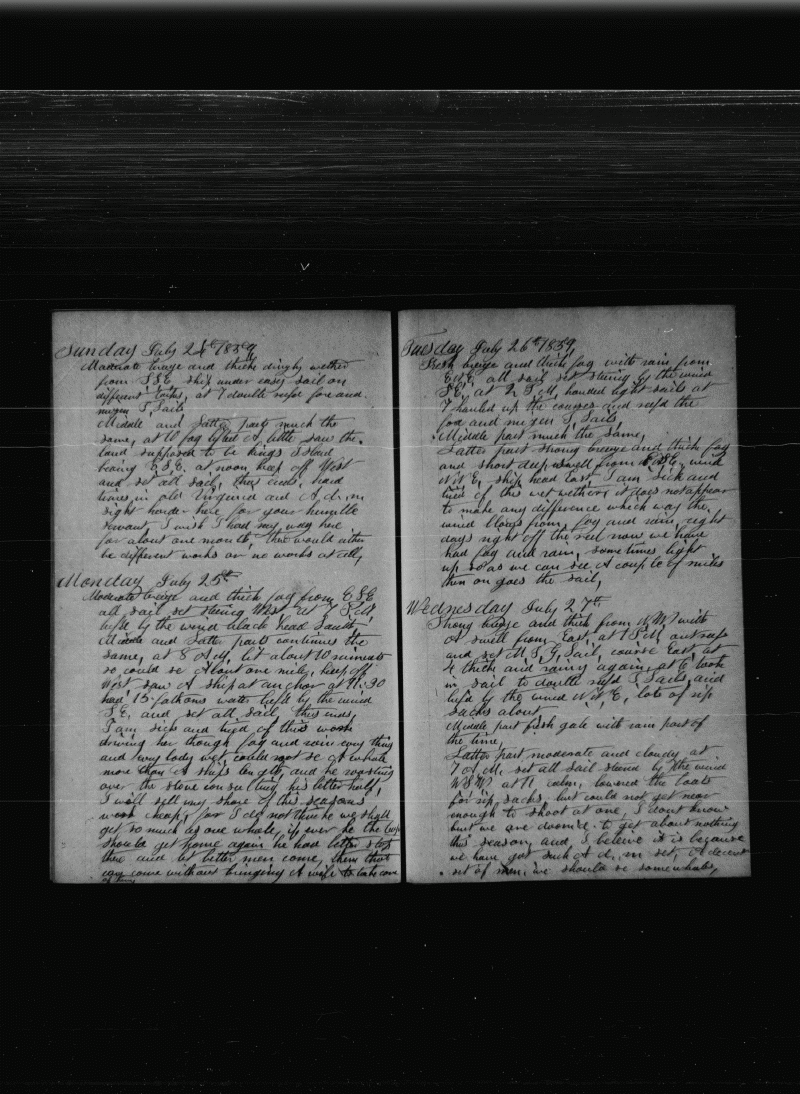 Sunday July 24th 1859
Moderate breeze and thick dingly wether
from S.S.E. ship under easy sail on
different tacks, at 7 double reefd fore and
mizen T, Sails
Middle and Latter parts much the
same, at 10 fog lifted A little saw the
land supposed to be kings Island
bearing E.S.E. at noon, keep off West
and set all sail, thus ends, hard
times in old Virginia and A d..m
sight harder here for your humble
servant, I wish I had my way here
for about one month, thare would either
be different works or no works at all,
Monday July 25th
Moderate breeze and thick fog from E.S.E
all sail set steering West at 7 P.M.
luf'd by the wind black head South
Middle and Latter parts continues the
same, at 8 A.M, lit about 10 minuets
so could se About one mile, keep off
West saw A ship at anchor at 11.30
had 15 fathoms water luf'd by the wind
S.E. and set all sail, this ends,
I am sick and tired of this work
driving her though fog and rain evry thing
and evry body wet, could not se A whale
more than A ships length, and he roasting
over the stove consulting his better half,
I will sell my share of this seasons
work cheap, for I do not think we shall
get so much as one whale, if ever he the
should get home again he had better stop
thare and let better men come, them that
can come without bringing A wife to take care
of him,
Tuesday July 26th 1859
Fresh breeze and thick fog with rain from
E.N.E. all sail set steering by the wind
S.E. at 2 P.M, handed light sails at
7 hauled up the courses and reefd the
fore and mizen T, Sails,
Middle part much the same,
Latter part strong breeze and thick fog
and short deep swell from E.S.E. wind
N.N.E. ship head East, I am sick and
tired of this wet wether, it does not appear
to make any difference which way the
wind blows from, fog and rain, eight
days right off the reel now we have
had fog and rain, sometimes light
up so as we can see A couple of miles
then on goes the sail,
Wednesday July 27th
Strong breeze and thick from N.N.W with
A swell from East, at 1 P.M. out reefs
and set M.T.G. Sail, course East, at
4 thick and rainy again, at 6 took
in sail to double reefd T, Sails, and
luf'd by the wind N.N.E, lots of rip
sacks about
Middle part fresh gale with rain part of
the time,
Latter part moderate and cloudy at
7 A.M. set all sail steered by the wind
W.S.W. at 11 calm, lowered the boats
for rip, sacks, but could not get near
enough to shoot at one, I dont know
but we are doomed to get about nothing
this season, and I beleve it is because
we have got such A d..m set, A decent
set of men, we should se some whales,